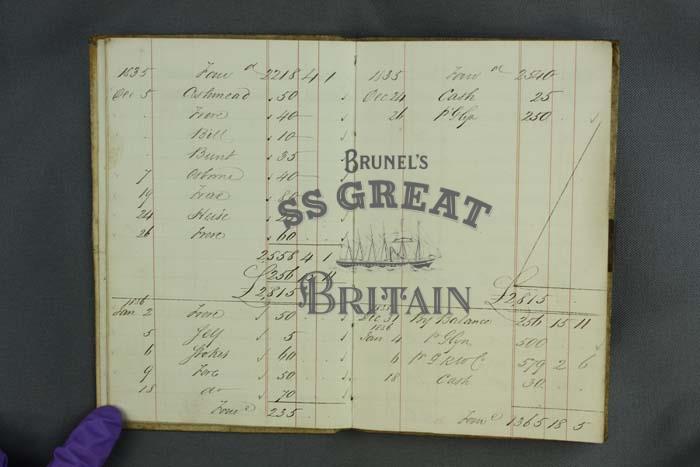 1835 Forw d 2218 4 1
Dec 5 Ashmead 50
Frere 40
Bell 10
Bunt 35
7 Osborne 40
19 Frere
24
26 Frere 60
2558 4 1
£256 15 11
£2815
1836
Jan 2 Frere 50
5 Jelf 5
6 Stokes 60
9 Frere 50
18 do 70
Forw d 235
1835 Forw d 2540
Dec 24 Cash 25
26 Pr Glyn 250
£2815
1835
Dec 31 By Balance 256 15 11
1836
Jan 4 Pr Glyn 500
6 579 2 6
18 Cash 30
Forw d 1365 18 5
BRUNEL'S
SS GREAT
BRITAIN